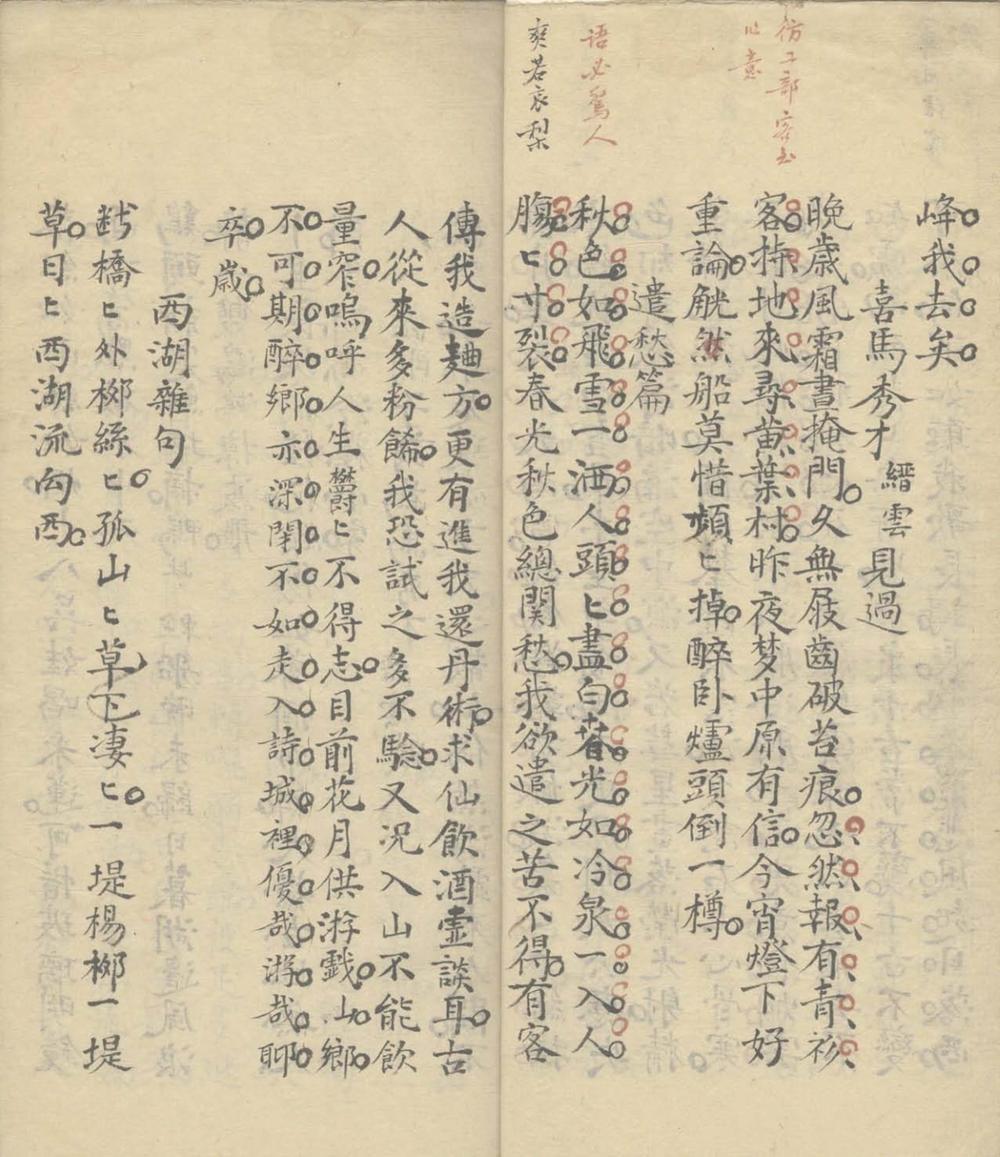 峰我去矣
喜馬秀才縉雲見過
晚歳風霜晝掩門久無屐齒破苔痕忽然報有青衫
客掃地來尋黄葉村昨夜梦中原有信今宵燈下好
重論觥然船莫惜頻〻掉醉卧爐頭倒一樽
遣愁篇
秋色如飛雪一洒人頭〻盡白春光如冷泉一入人
腸〻寸裂春光秋色總関愁我欲遣之苦不得有客
傳我造麯方更有進我還丹術求仙飲酒虚談耳古
人從來多粉餙我恐試之多不驗又况入山不能飲
量窄嗚呼人生欝〻不得志目前花月供游戲山鄉
不可期醉鄉亦深閉不如走入詩城裡優哉游哉聊
卒歳
西湖雜句
断橋〻外栁絲〻孤山〻草下凄〻一堤楊栁一堤
草日〻西湖流向西
仿工部客至
意
语必驚人
爽若哀梨